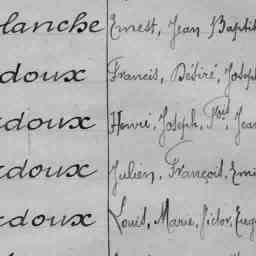 lanche Ernest, Jean Baptis
doux Francis, Désiré, Josep
doux Henri, Joseph, Jea
doux Julien, François, Emi
doux Louis, Marie, Victor, Eug